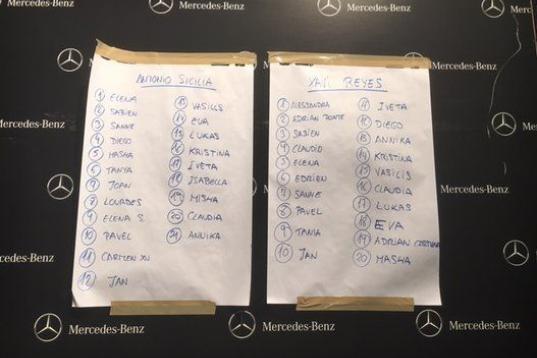 Mercedes-Benz
Mercedes-Benz
Mercedes-Benz
ANTONIO SICILIA
1 ELENA
2 SABIEN
3 SANNE
4 DIEGO
5 MASHA
6 TANYA
7 JOAN
8 LOURDES
9 ELENA S.
10 PAVEL
11 CARMEN
12 JAN
13 VASILIS
14 EVA
15 LUKAS
16 KRISTINA
17 IVETA
18 ISABELLA
19 MISHA
20 CLAUDIA
21 ANNIKA
REYES
1 ALESSANDRA
2 ADRIAN
3 SABIEN
4 CLAUDIO
5 ELENA
6 EDRIEN
7 SANNE
8 PAVEL
9 TANIA
10 JAN
11 IVETA
12 DIEGO
13 ANNIKA
14 KRISTINA
15 VASILIS
16 CLAUDIA
17 LUKAS
18 EVA
19 ADRIAN
20 MASHA
Mercedes-Benz
Mercedes-Benz
Mercedes-Benz
Mercedes-Benz